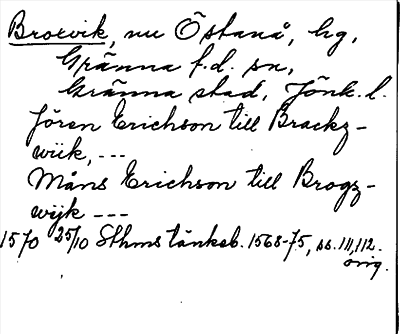 Broxvik, nu Östanå, hg,
Gränna f.d. sn,
Gränna stad, Jönk. l.
Jören Erichson till Brackz-
wiik, ---
Måns Erichson till Brogz-
wijk ---
1570 25/10 Sthms tänkeb. 1568-75, ss. 111, 112.
orig.